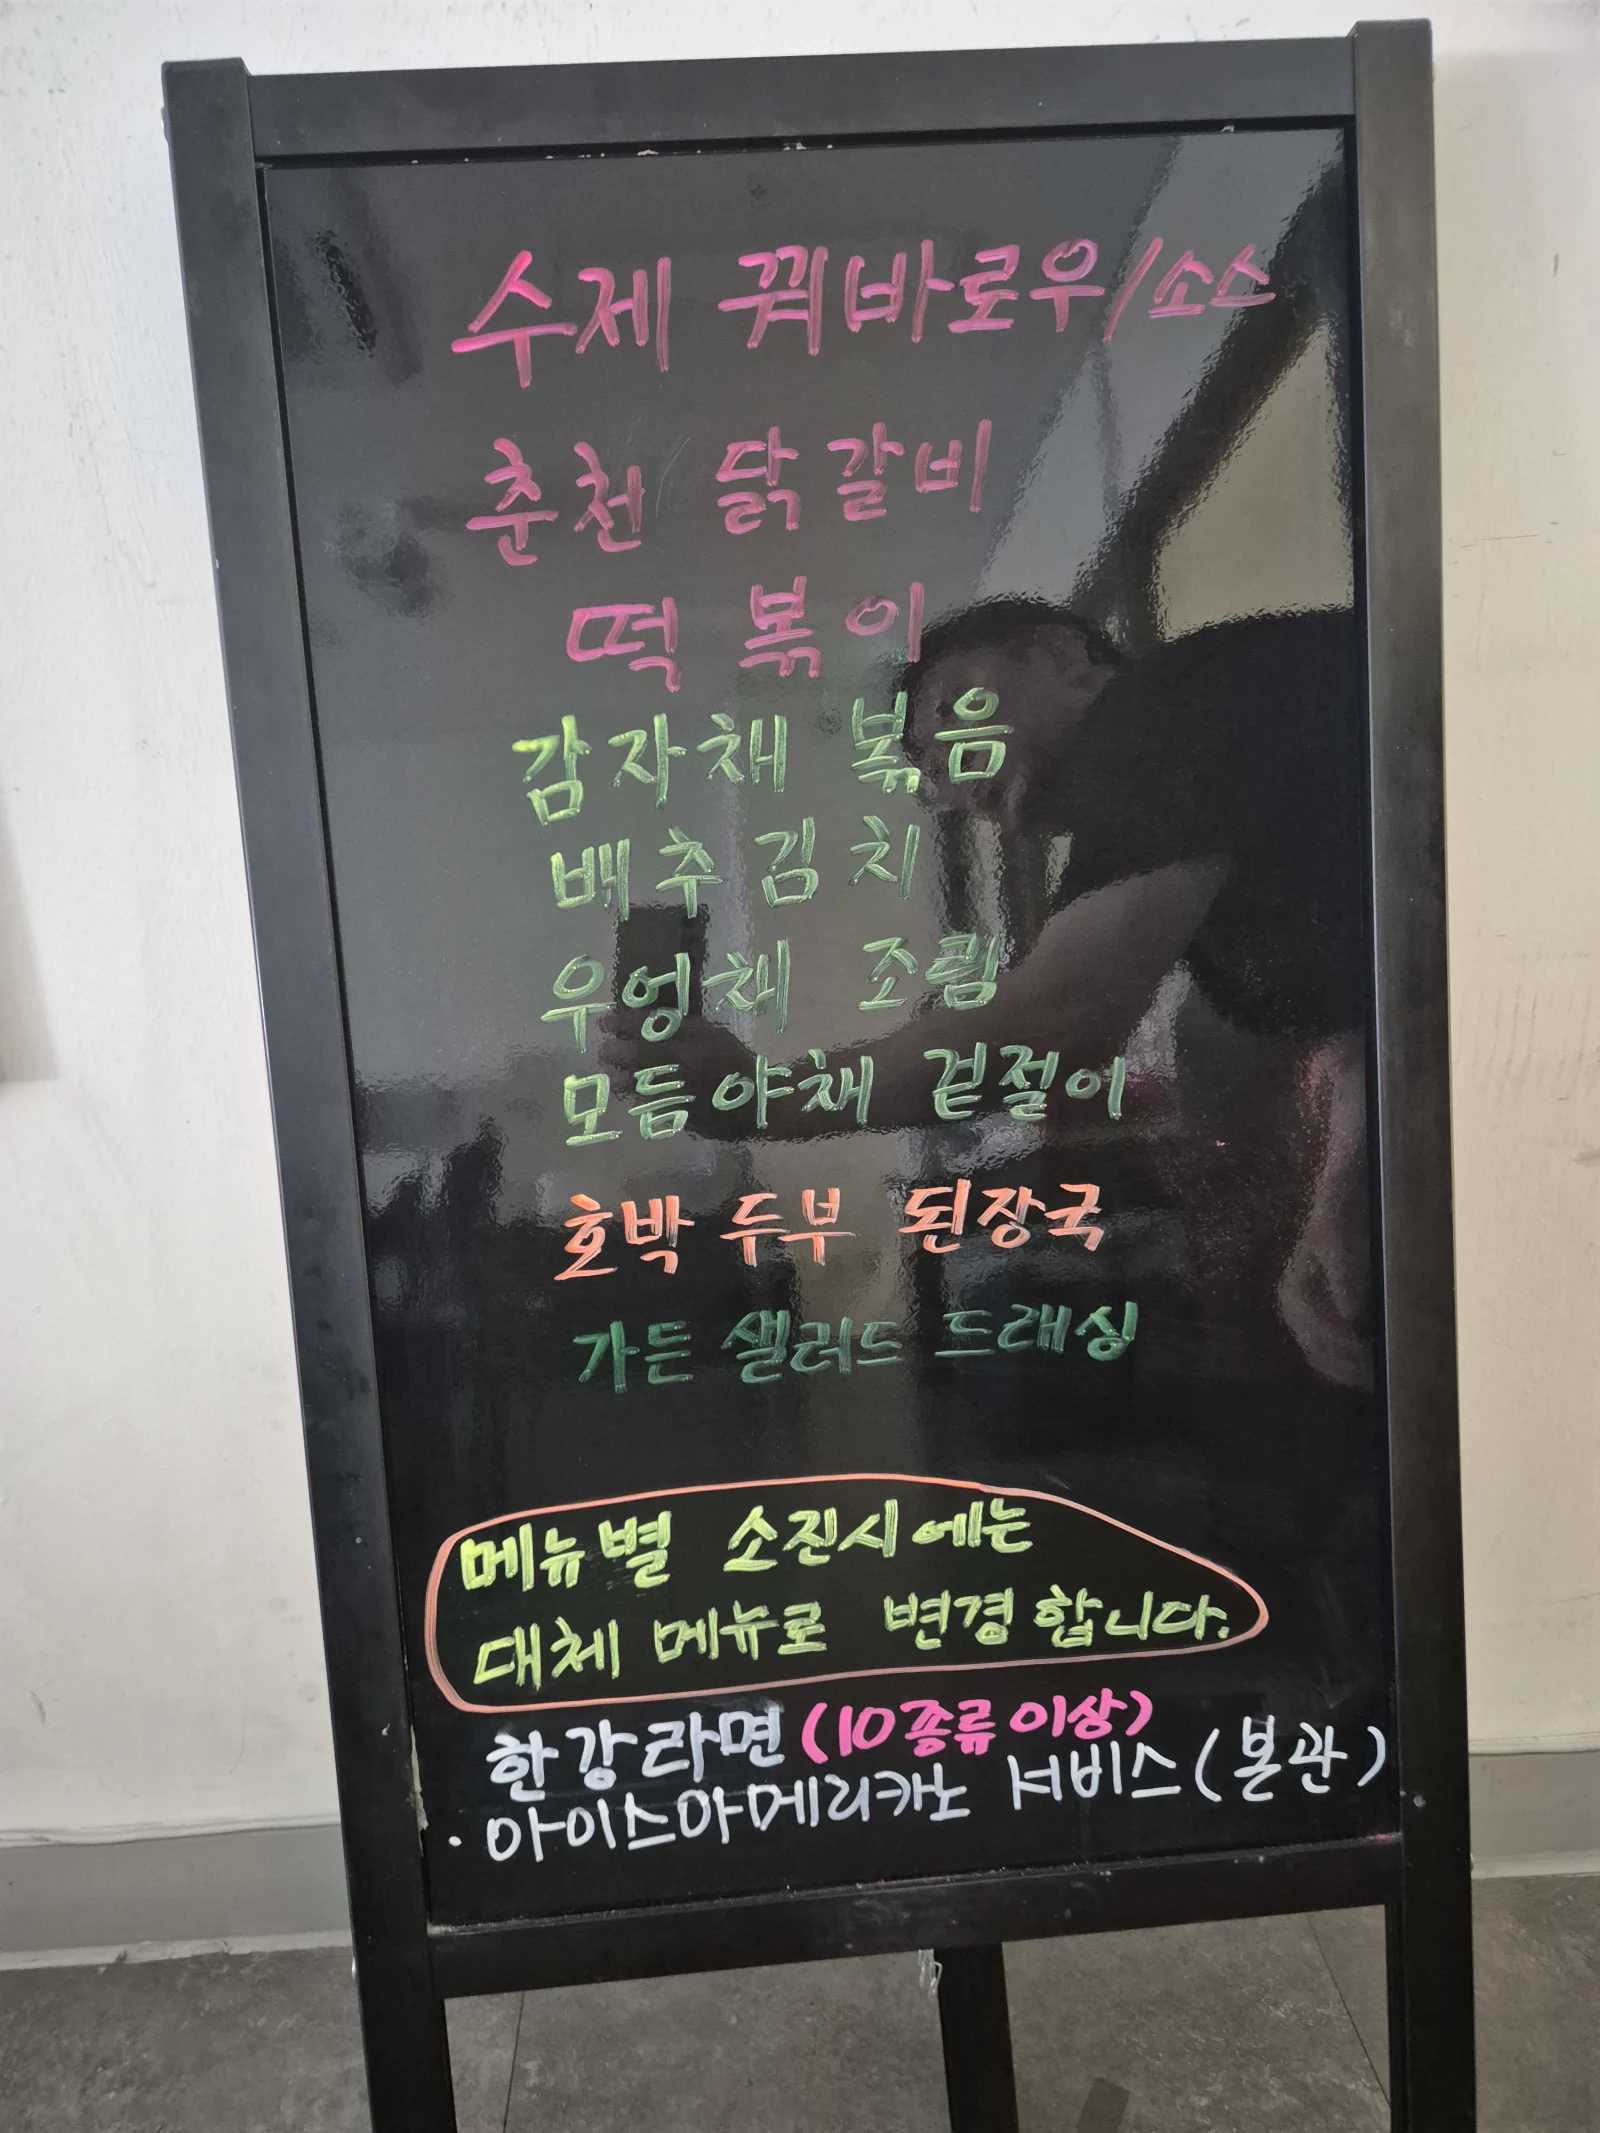 수제 꿔바로우/소스
춘천 닭갈비
떡 볶이
감자채 볶음
배추김치
우엉채 조림
모듬야채 겉절이
호박 두부 된장국
가든 샐러드 드래싱
메뉴별 소진시에는
대체 메뉴로 변경합니다.
한강라면 (10종류이상)
·아이스아메리카노 서비스(본관)